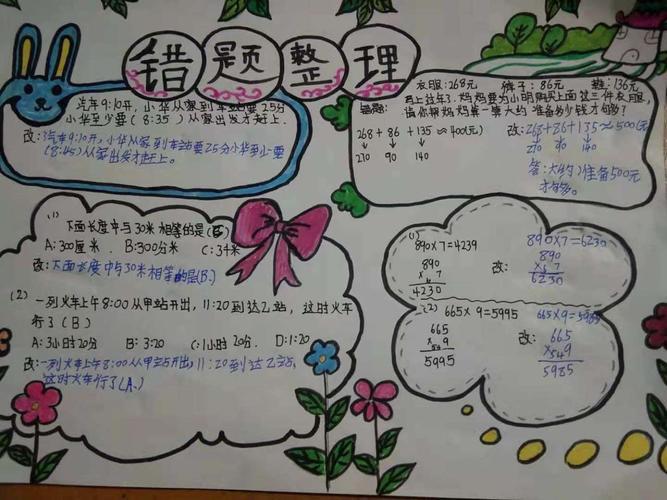 错题整理
汽车9:10开,小华从家到车站要25分
小华至少要(8:35)从家出发才赶上.
改:汽车9:10开,小华从家到车站要25分小华至少要
(8:45)从家出发才赶上.
衣服:268元 裤子:86元 鞋:136元
马上过年了.妈妈要为小明购买上面这三件衣服,
错题: 请你帮妈妈算一算大约准备多少钱才够?
268+86+135≈400(元)
270 90 140
改:268+86+135≈500(元)
270 90 140
答:大约准备500元
才够.
(1)
下面长度中与30米相等的是(C)
A:300厘米 B:300分米 C:34米
改:下面长度中与30米相等的是(B.)
(2)
一列火车上午8:00从甲站开出,11:20到达乙站,这时火车
行了(B)
A:3小时20分 B:3:20 C:1小时20分. D:1:20
改:一列火车上午8:00从甲站开出,11:20到达乙站,
这时火车行了(A.)
(1)
890×7=4239
890
× 7
4230
改:
890×7=6230
890
×67
6230
(2) 665×9=5995
665
×549
5995
改:
665×9=5985
665
×549
5985